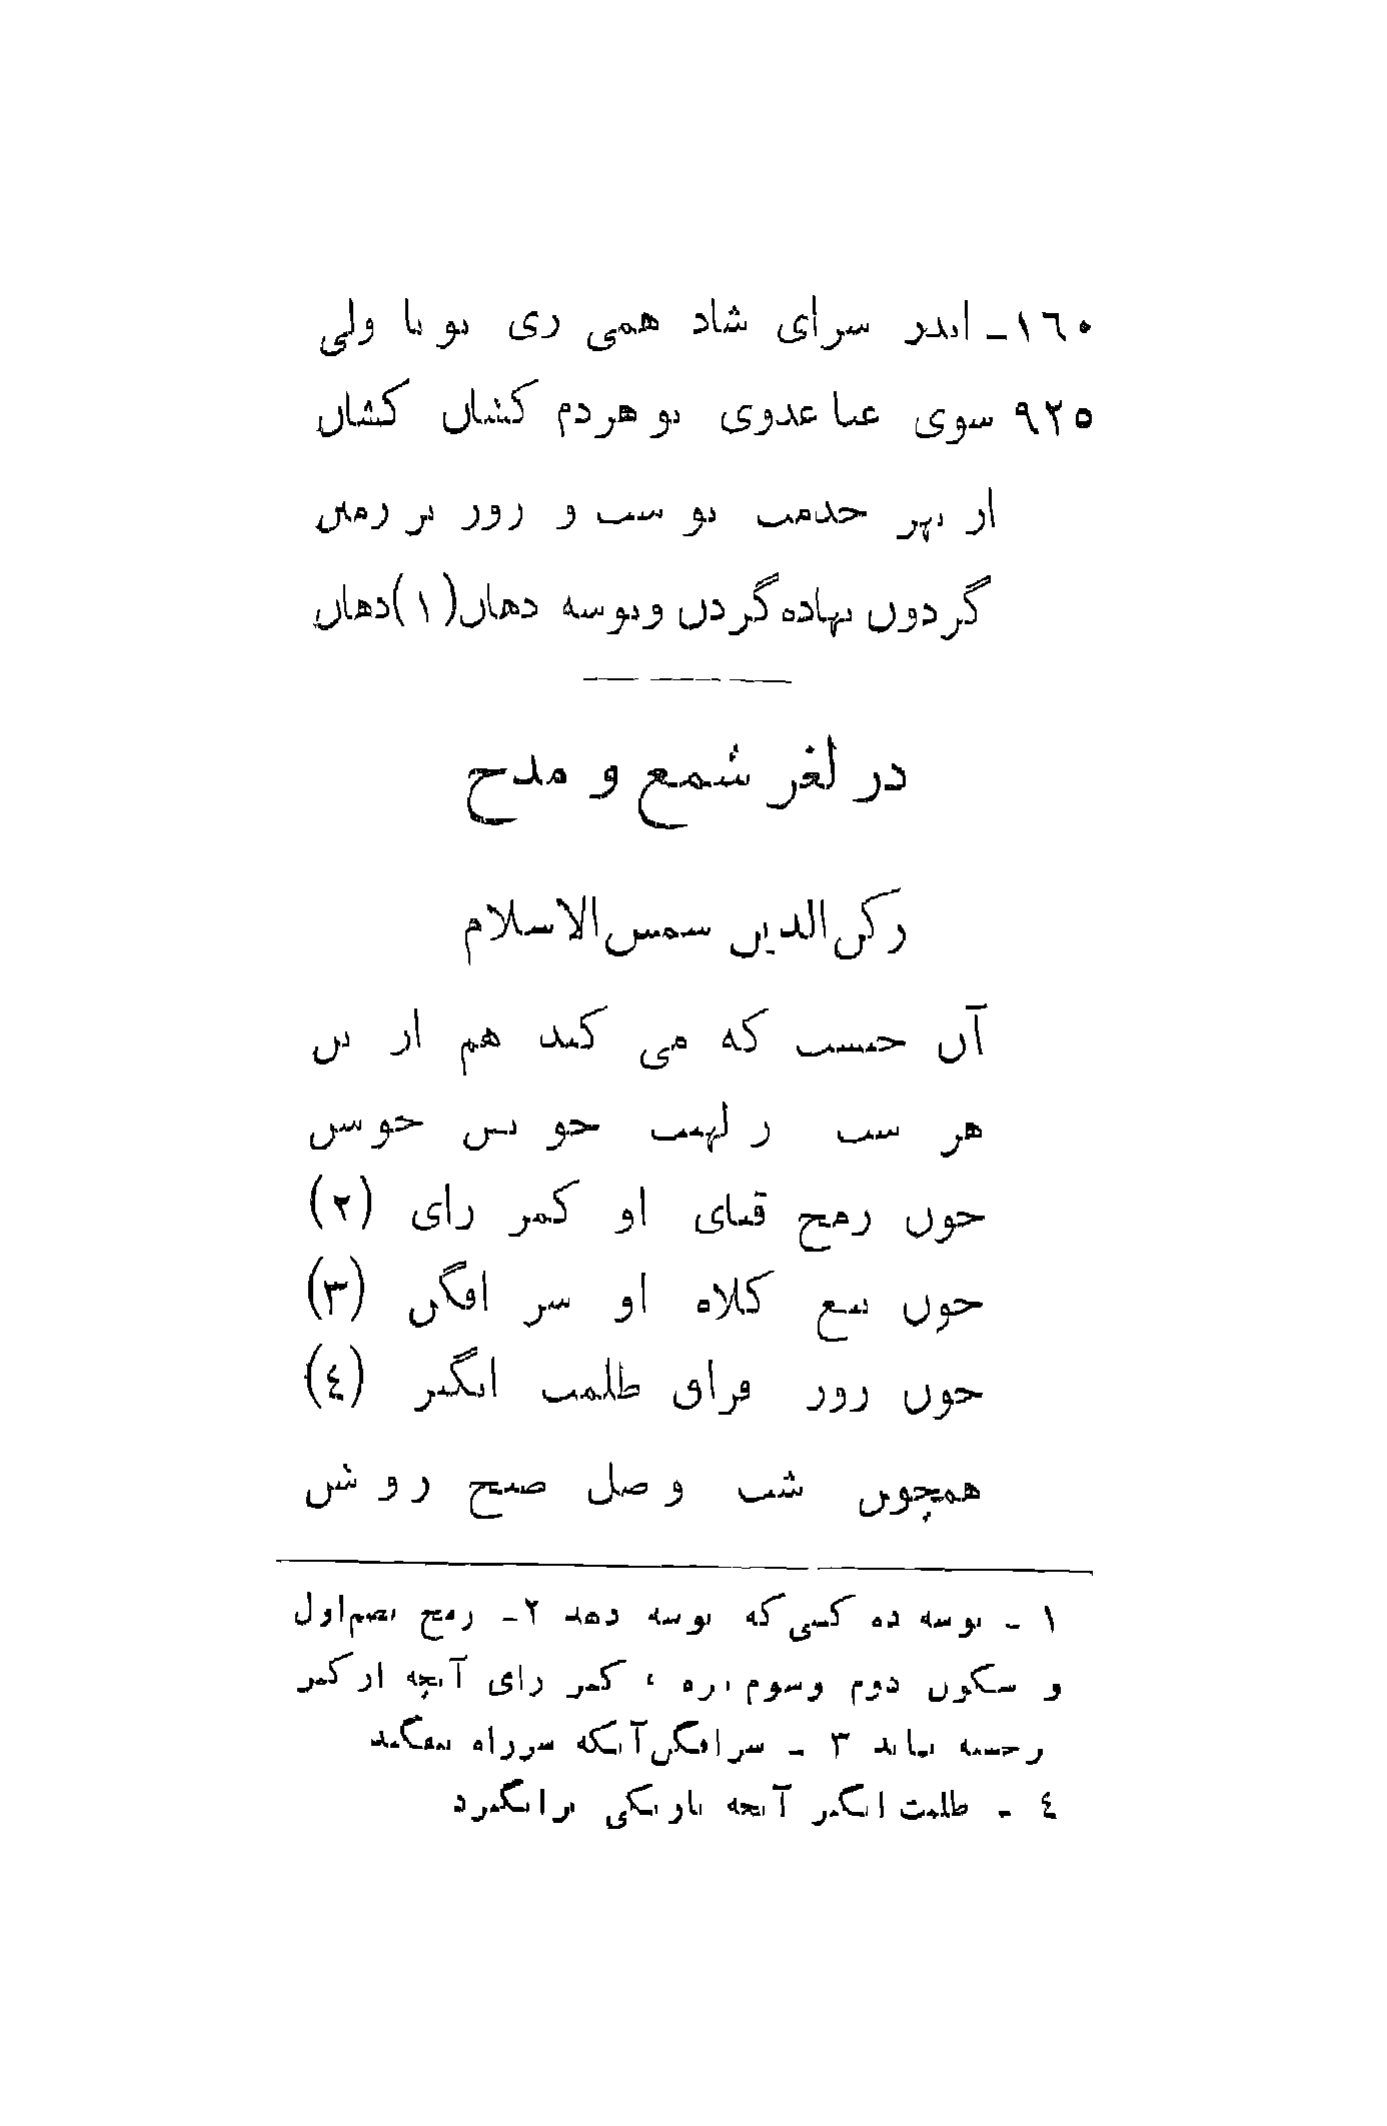 ۱۶۰- اندر سرای شاد همی زی تو با ولی
۹۲۵ سوی عنا عدوی تو هردم کشان کشان
از بهر خدمت تو شب و روز بر زمین
گردون نهاده گردن و بوسه دهان (۱) دهان
در لغز شمع و مدح
رکن‌الدین شمس‌الاسلام
آن چیست که می کند هم از تن
هر شب ز لهیب خویش جوشن
چون رمح قبای او کمر زای (۲)
چون تیغ کلاه او سر افگن (۳)
چون روز فراق ظلمت انگیز (٤)
همچون شب وصل صبح روشن
۱ - بوسه ده کسی که بوسه دهد ۲- رمح بضم اول
و سکون دوم وسوم نیزه ، کمر زای آنچه از کمر
۳ - سرافگن آنکه سرراه بیفگند
٤ - ظلمت انگیز آنچه تاریکی برانگیزد